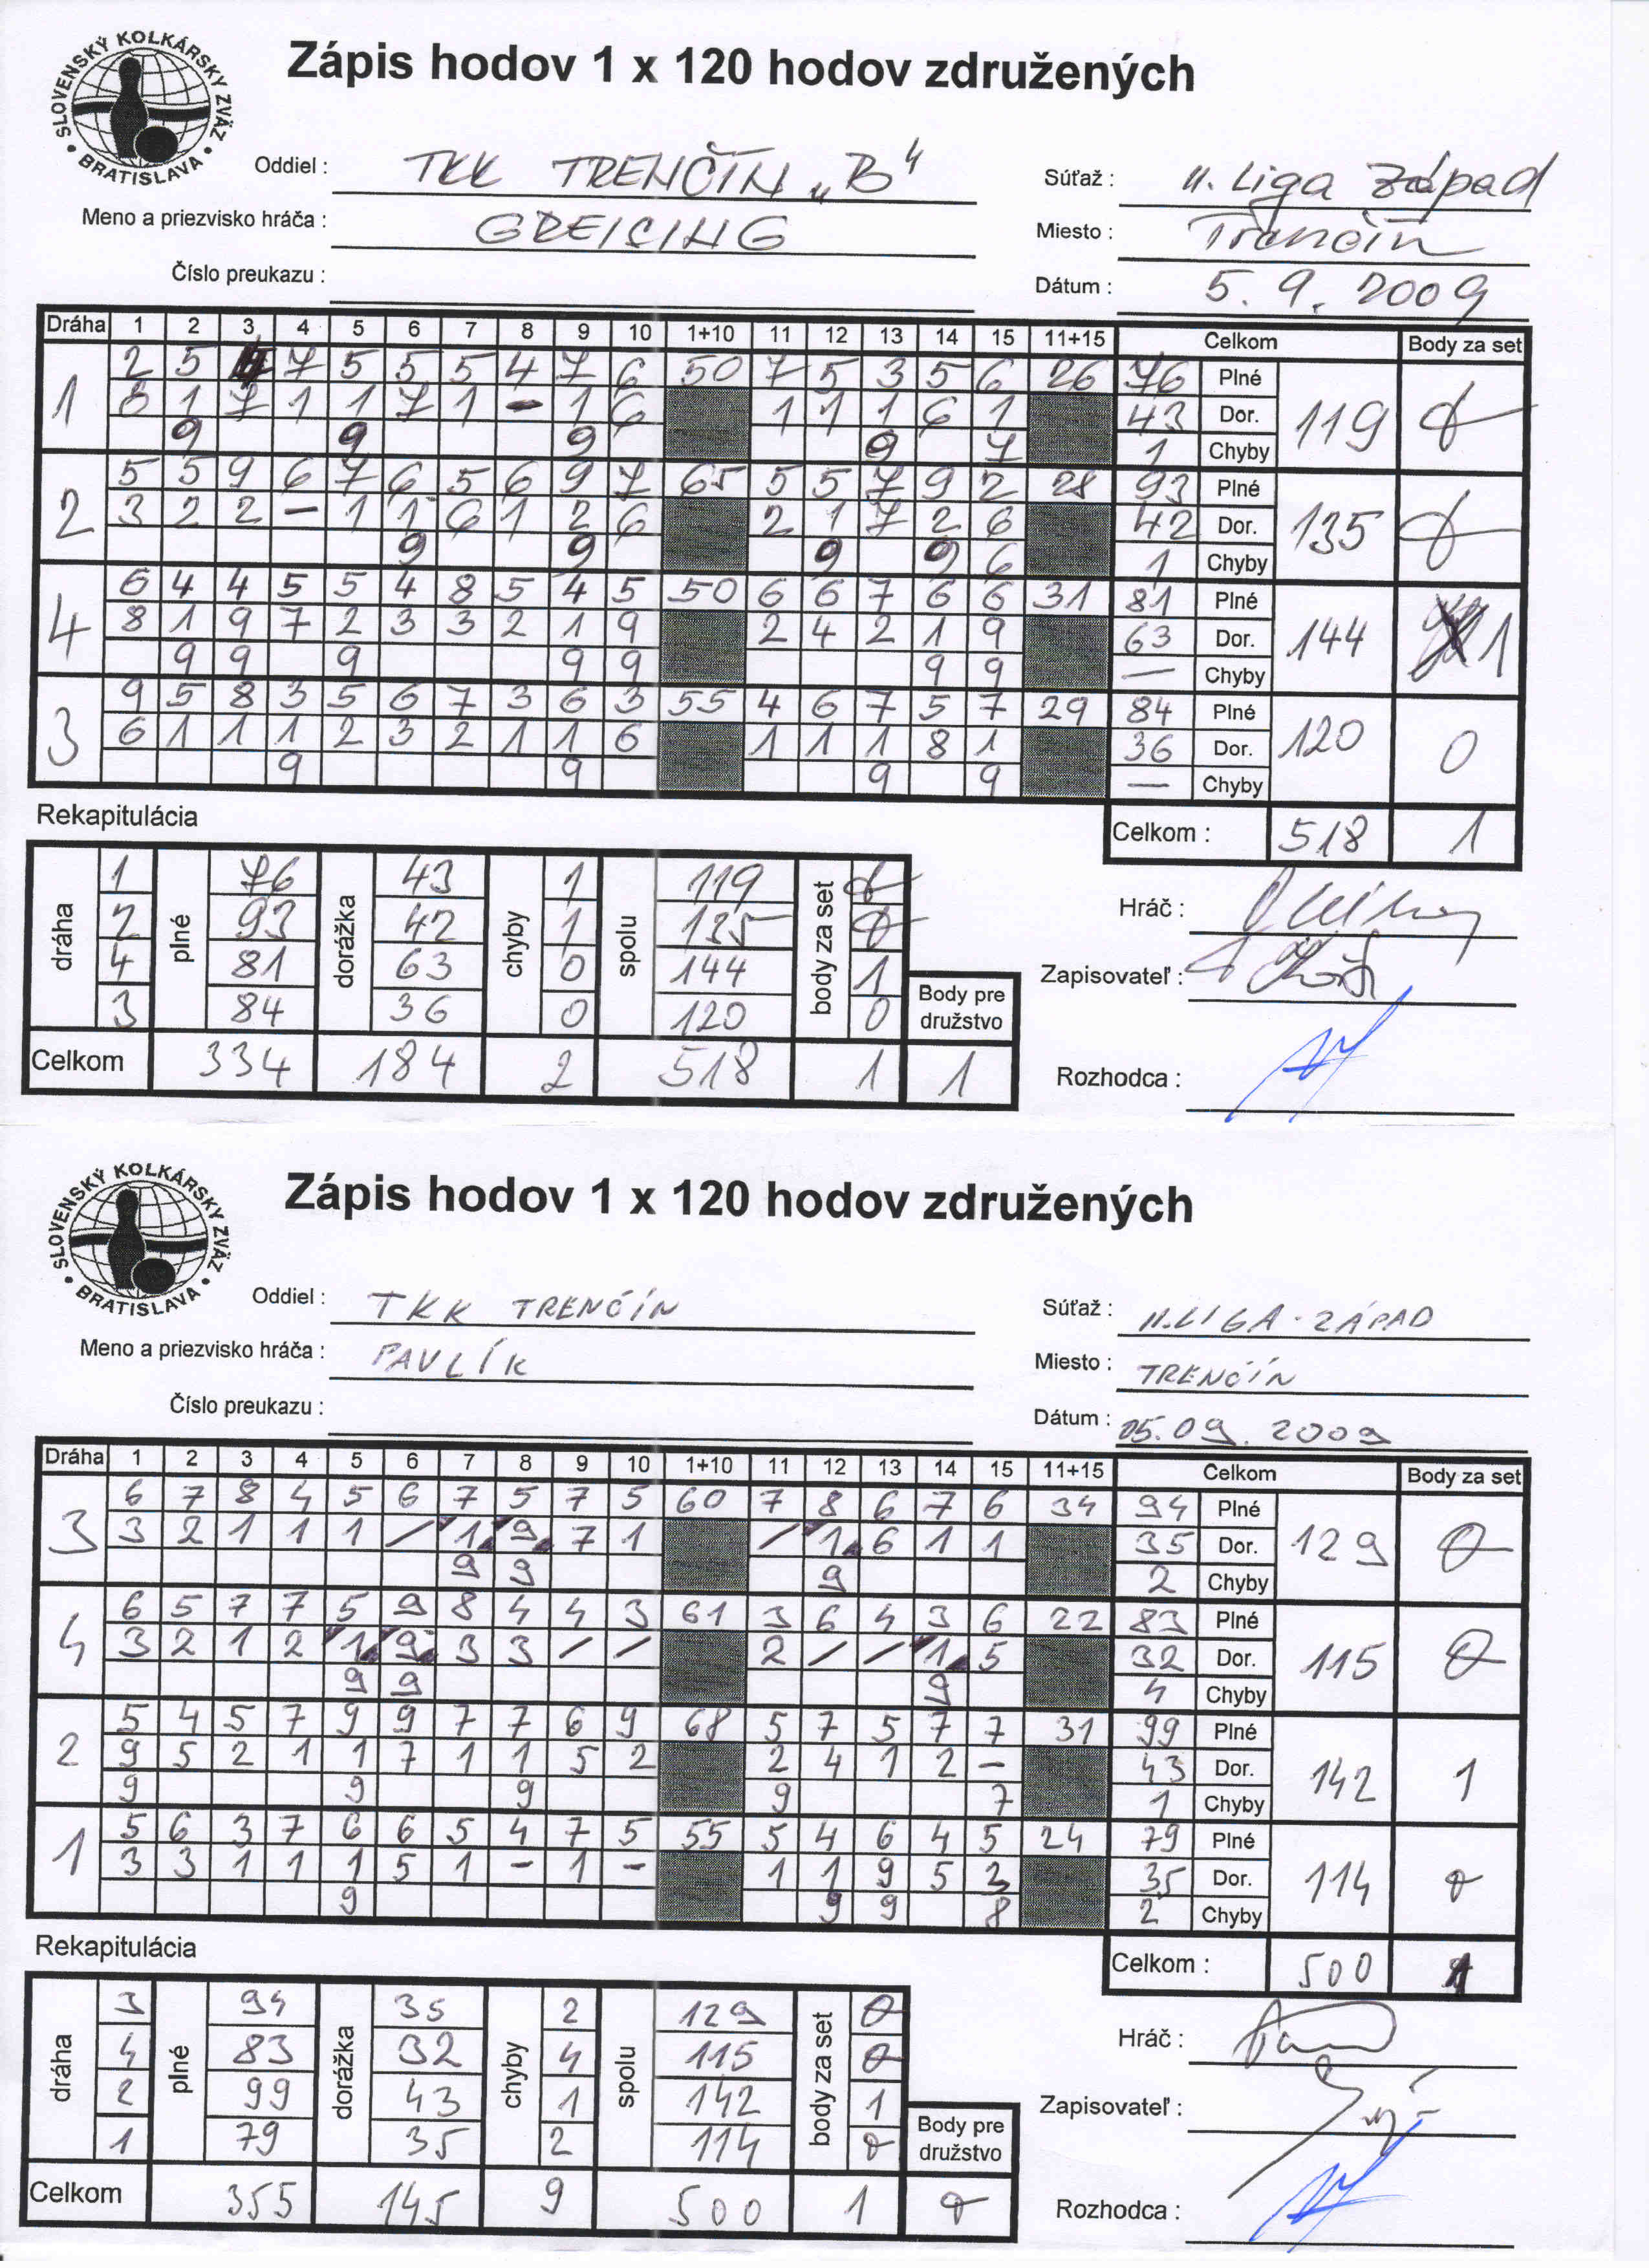 SLOVENSKÝ KOLKÁRSKY ZVÄZ • BRATISLAVA •
Zápis hodov 1 x 120 hodov združených
Oddiel : TKK TRENČÍN „B“
Súťaž : II. Liga Západ
Meno a priezvisko hráča : GREISING
Miesto : Trenčín
Číslo preukazu :
Dátum : 5. 9. 2009
Dráha 1 2 3 4 5 6 7 8 9 10 1+10 11 12 13 14 15 11+15 Celkom Body za set
1 2 5 4 7 5 5 5 4 7 6 50 7 5 3 5 6 26 76 Plné 119 0
8 1 7 1 1 7 1 - 1 6 1 1 1 6 1 43 Dor.
9 9 9 9 7 1 Chyby
2 5 5 9 6 7 6 5 6 9 7 65 5 5 7 9 2 28 93 Plné 135 0
3 2 2 - 1 1 6 1 2 6 2 1 7 2 6 42 Dor.
9 9 9 9 6 1 Chyby
4 6 4 4 5 5 4 8 5 4 5 50 6 6 7 6 6 31 81 Plné 144 1
8 1 9 7 2 3 3 2 1 9 2 4 2 1 9 63 Dor.
9 9 9 9 9 9 9 — Chyby
3 9 5 8 3 5 6 7 3 6 3 55 4 6 7 5 7 29 84 Plné 120 0
6 1 1 1 2 3 2 1 1 6 1 1 1 8 1 36 Dor.
9 9 9 9 — Chyby
Celkom : 518 1
Rekapitulácia
dráha plné dorážka chyby spolu body za set
1 76 43 1 119 0
2 93 42 1 135 0
4 81 63 0 144 1
3 84 36 0 120 0
Body pre družstvo
Celkom 334 184 2 518 1 1
Hráč :
Zapisovateľ :
Rozhodca :
SLOVENSKÝ KOLKÁRSKY ZVÄZ • BRATISLAVA •
Zápis hodov 1 x 120 hodov združených
Oddiel : TKK TRENČÍN
Súťaž : II. LIGA - ZÁPAD
Meno a priezvisko hráča : PAVLÍK
Miesto : TRENČÍN
Číslo preukazu :
Dátum : 05.09. 2009
Dráha 1 2 3 4 5 6 7 8 9 10 1+10 11 12 13 14 15 11+15 Celkom Body za set
3 6 7 8 4 5 6 7 5 7 5 60 7 8 6 7 6 34 94 Plné 129 0
3 2 1 1 1 / 1 9 7 1 / 1 6 1 1 35 Dor.
9 9 9 2 Chyby
4 6 5 7 7 5 9 8 4 4 3 61 3 6 4 3 6 22 83 Plné 115 0
3 2 1 2 1 9 3 3 / / 2 / / 1 5 32 Dor.
9 9 9 4 Chyby
2 5 4 5 7 9 9 7 7 6 9 68 5 7 5 7 7 31 99 Plné 142 1
9 5 2 1 1 7 1 1 5 2 2 4 1 2 - 43 Dor.
9 9 9 9 7 1 Chyby
1 5 6 3 7 6 6 5 4 7 5 55 5 4 6 4 5 24 79 Plné 114 0
3 3 1 1 1 5 1 - 1 - 1 1 9 5 2 35 Dor.
9 9 9 8 2 Chyby
Celkom : 500 1
Rekapitulácia
dráha plné dorážka chyby spolu body za set
3 94 35 2 129 0
4 83 32 4 115 0
2 99 43 1 142 1
1 79 35 2 114 0
Body pre družstvo
Celkom 355 145 9 500 1 0
Hráč :
Zapisovateľ :
Rozhodca :